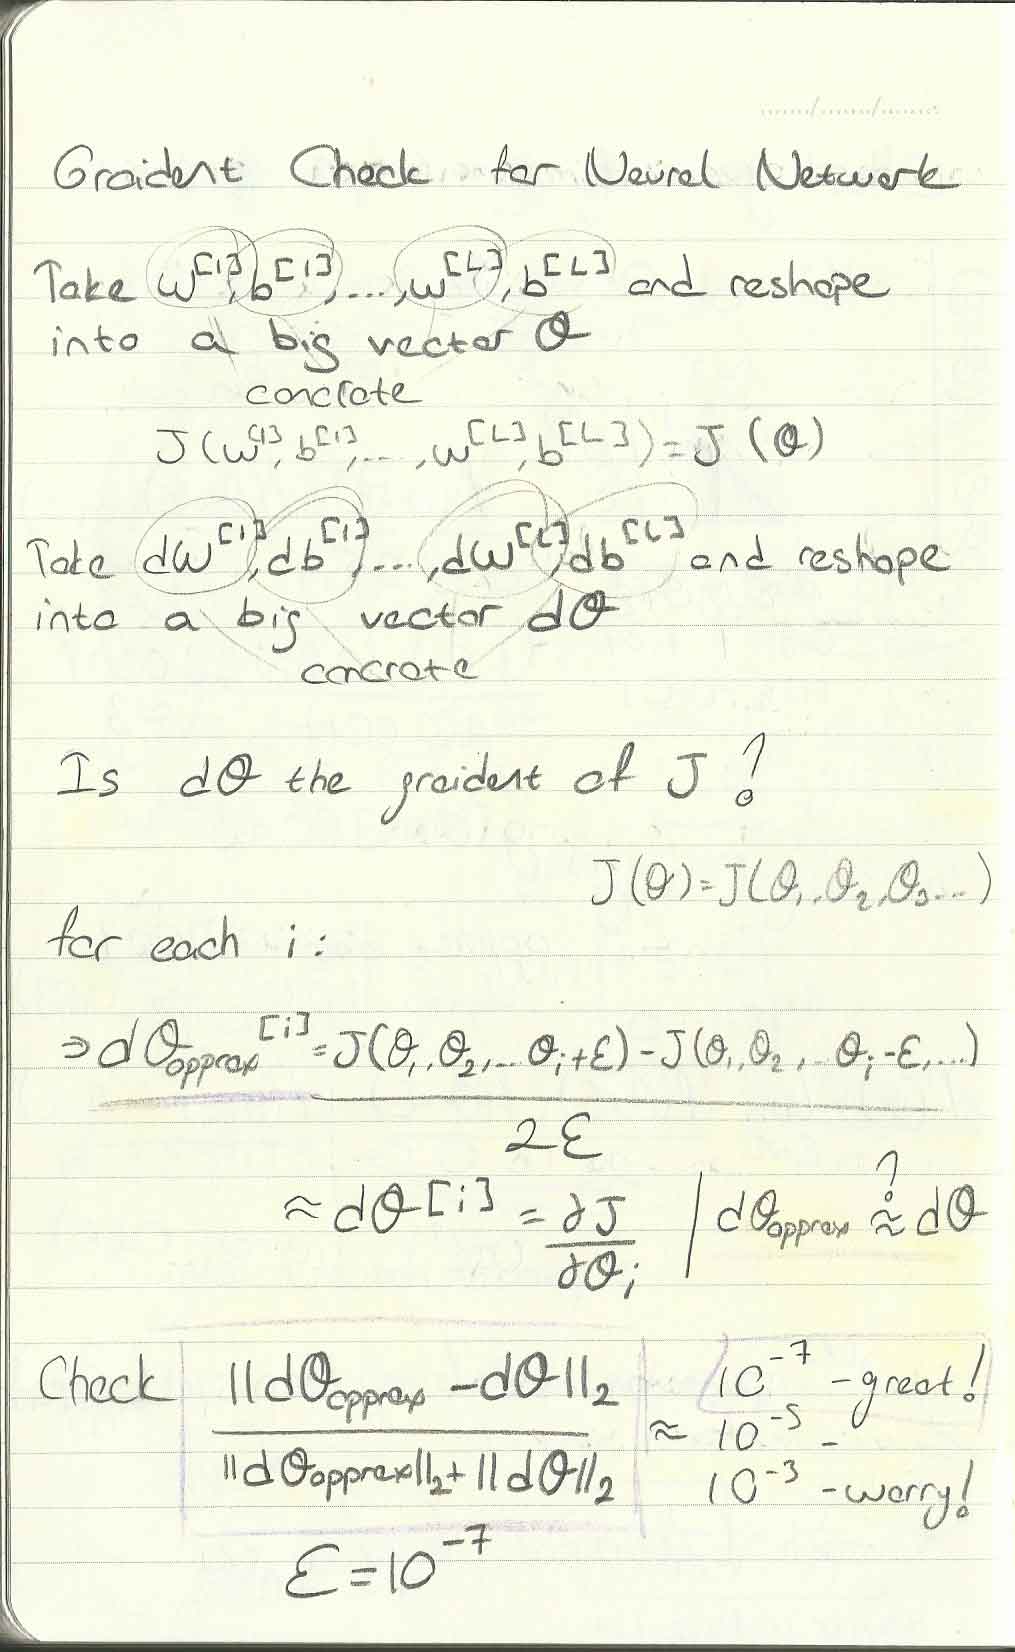 Graident Check for Neural Network
Take w^[1], b^[1], ..., w^[L], b^[L] and reshape
into a big vector θ
concrate
J(w^[1], b^[1], ..., w^[L], b^[L]) = J(θ)
Take dw^[1], db^[1], ..., dw^[L], db^[L] and reshape
into a big vector dθ
concrate
Is dθ the graident of J?
J(θ) = J(θ₁, θ₂, θ₃...)
for each i:
⇒ dθ_approx^[i] = J(θ₁, θ₂, ... θᵢ+ε) - J(θ₁, θ₂, .. θᵢ-ε, ...)
2ε
≈ dθ[i] = ∂J/∂θᵢ | dθ_approx ≈? dθ
Check ||dθ_approx - dθ||₂ 10^-7 - great!
||dθ_approx||₂ + ||dθ||₂ ≈ 10^-5 -
10^-3 - worry!
ε = 10^-7